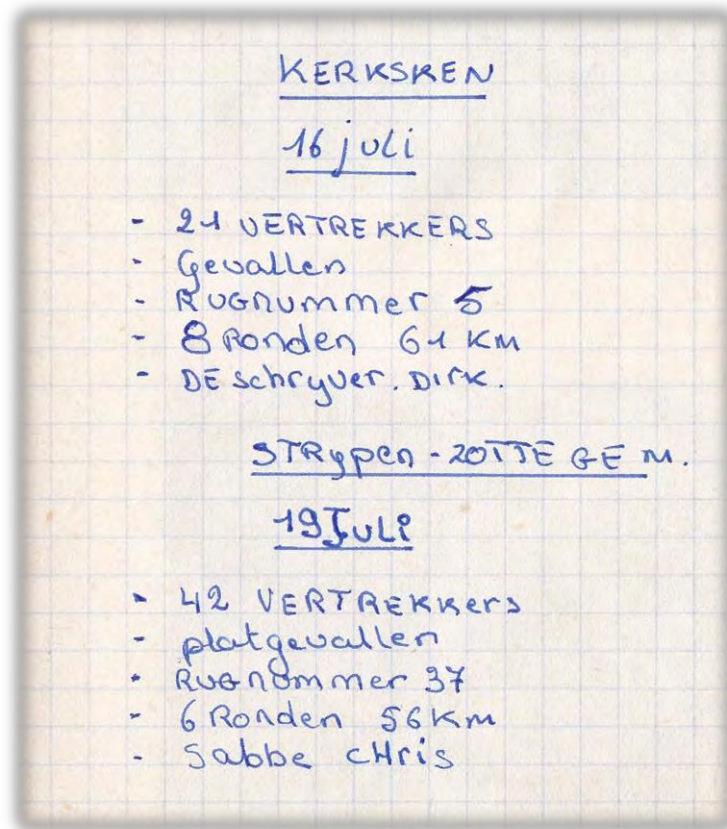 KERKSKEN
16 juli
- 21 VERTREKKERS
- Gevallen
- RUGnummer 5
- 8 Ronden 61 KM
- DE schryver. DIrK.
STRypen - ZOTTEGEM.
19 JuLi
- 42 VERTREKKers
- platgevallen
- RUGnommer 37
- 6 Ronden 56 Km
- Sabbe CHris